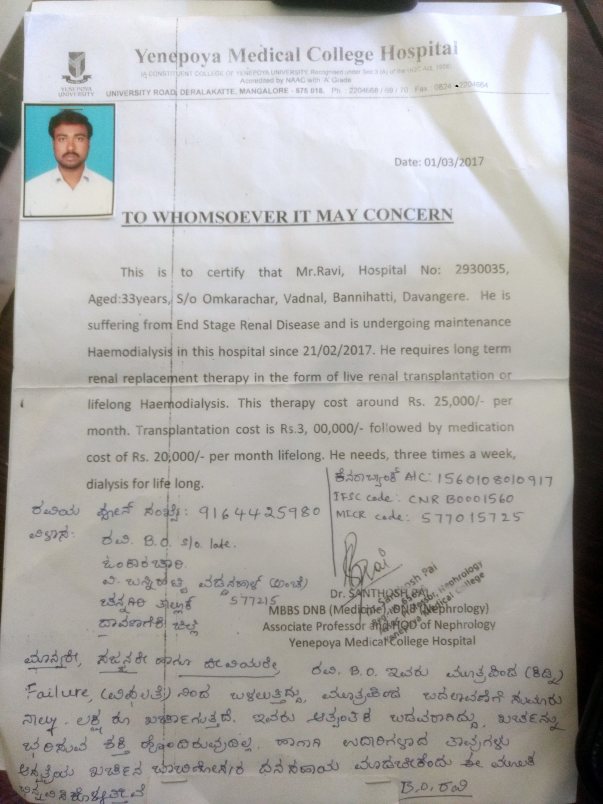 Yenepoya Medical College Hospital
(A CONSTITUENT COLLEGE OF YENEPOYA UNIVERSITY, Recognised under Sec 3 (A) of the UGC Act, 1956)
Accredited by NAAC with 'A' Grade
UNIVERSITY ROAD, DERALAKATTE, MANGALORE - 575 018, Ph : 2204668 / 69 / 70 Fax : 0824 - 2204664
YENEPOYA
UNIVERSITY
Date: 01/03/2017
TO WHOMSOEVER IT MAY CONCERN
This is to certify that Mr.Ravi, Hospital No: 2930035,
Aged:33years, S/o Omkarachar, Vadnal, Bannihatti, Davangere. He is
suffering from End Stage Renal Disease and is undergoing maintenance
Haemodialysis in this hospital since 21/02/2017. He requires long term
renal replacement therapy in the form of live renal transplantation or
lifelong Haemodialysis. This therapy cost around Rs. 25,000/- per
month. Transplantation cost is Rs.3, 00,000/- followed by medication
cost of Rs. 20,000/- per month lifelong. He needs, three times a week,
dialysis for life long.
ಕೆನರಾಬ್ಯಾಂಕ್ A/C: 1560108010917
IFSC code: CNRB0001560
MICR code: 577015725
ರವಿಯ ಫೋನ್ ಸಂಖ್ಯೆ: 9164425980
ವಿಳಾಸ: ರವಿ. B.O. s/o. late.
ಓಂಕಾರಚಾರಿ.
ವಿ. ಬನ್ನಿಹಟ್ಟಿ ವಡ್ನಹಾಳ್ (ಅಂಚೆ)
ಚನ್ನಗಿರಿ ತಾಲ್ಲೂಕ್ 577215
ದಾವಣಗೆರೆ ಜಿಲ್ಲೆ
Dr. SANTHOSH PAI
MBBS DNB (Medicine), DNB (Nephrology)
Associate Professor and HOD of Nephrology
Yenepoya Medical College Hospital
Dr. Santhosh Pai
Nephrology
Yenepoya Medical College
ಮಾನ್ಯರೇ, ಸಜ್ಜನರೇ ಹಾಗೂ ದೇವಿಯರೇ, ರವಿ. B.O. ಇವರು ಮೂತ್ರಪಿಂಡ (ಕಿಡ್ನಿ)
Failure, (ವಿಫಲತೆ) ನಿಂದ ಬಳಲುತ್ತಿದ್ದು, ಮೂತ್ರಪಿಂಡ ಬದಲಾವಣೆಗೆ ಸುಮಾರು
ನಾಲ್ಕು ಲಕ್ಷ ರೂ ಖರ್ಚಾಗುತ್ತದೆ. ಇವರು ಅತ್ಯಂತ ಬಡವರಾಗಿದ್ದು, ಖರ್ಚನ್ನು
ಭರಿಸುವ ಶಕ್ತಿ ಹೊಂದಿರುವುದಿಲ್ಲ. ಹಾಗಾಗಿ ಉದಾರಿಗಳಾದ ತಾವುಗಳು
ಆಸ್ಪತ್ರೆಯ ಖರ್ಚಿನ ಧನಸಹಾಯ ಮಾಡಬೇಕೆಂದು ಈ ಮೂಲಕ
ಬಿನ್ನವಿಸಿಕೊಳ್ಳುತ್ತೇವೆ B.O. ರವಿ